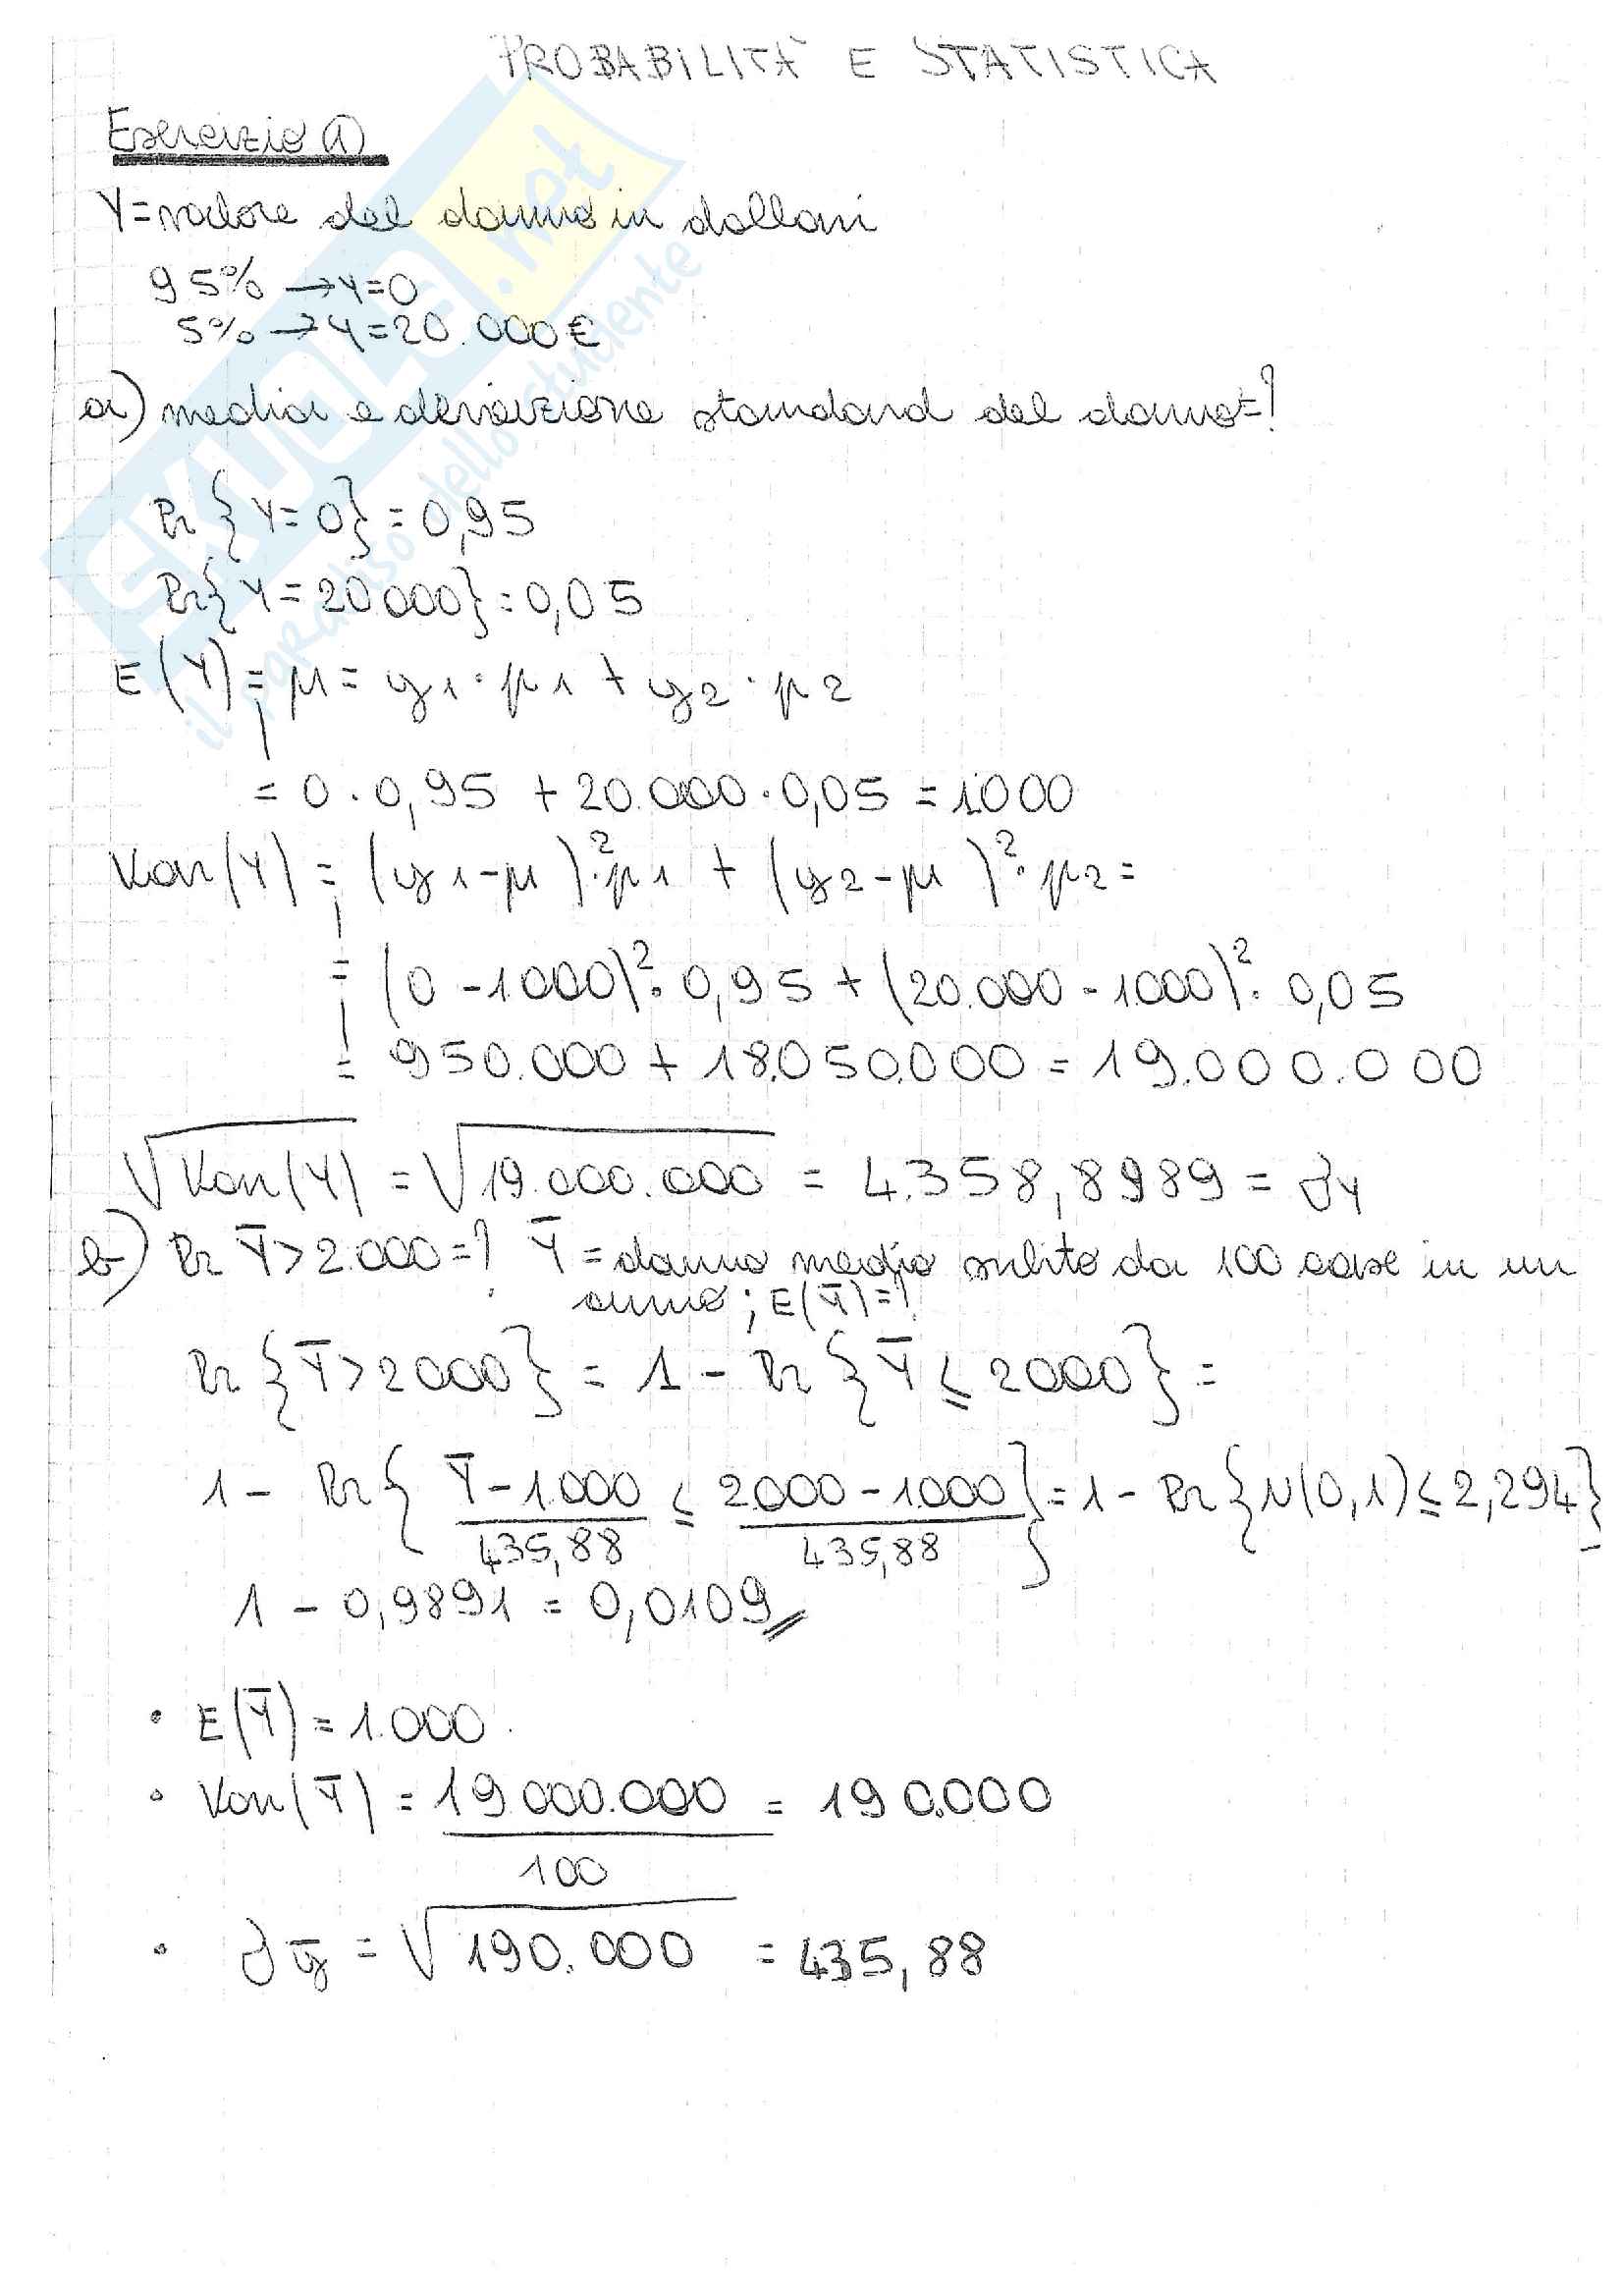 PROBABILITÀ E STATISTICA
Esercizio 1)
Y=valore del danno in dollari
95% → Y=0
5% → Y=20.000€
a) media e deviazione standard del danno=?
Pr{Y=0}=0,95
Pr{Y=20000}=0,05
E(Y)=μ=y1·p1+y2·p2
=0·0,95+20.000·0,05=1.000
Var(Y)=(y1-μ)²·p1+(y2-μ)²·p2=
=(0-1000)²·0,95+(20.000-1.000)²·0,05
=950.000+18.050.000=19.000.000
√Var(Y)=√19.000.000=4.358,8989=σY
b) Pr Ȳ>2.000=? Ȳ=danno medio subito da 100 case in un
anno; E(Ȳ)=?
Pr{Ȳ>2000}=1-Pr{Ȳ≤2000}=
1-Pr{(Ȳ-1.000)/435,88≤(2.000-1.000)/435,88}=1-Pr{N(0,1)≤2,294}
1-0,9891=0,0109
• E(Ȳ)=1.000
• Var(Ȳ)=19.000.000/100=190.000
• σȳ=√190.000=435,88
SKUOLA.net
il paradiso dello studente